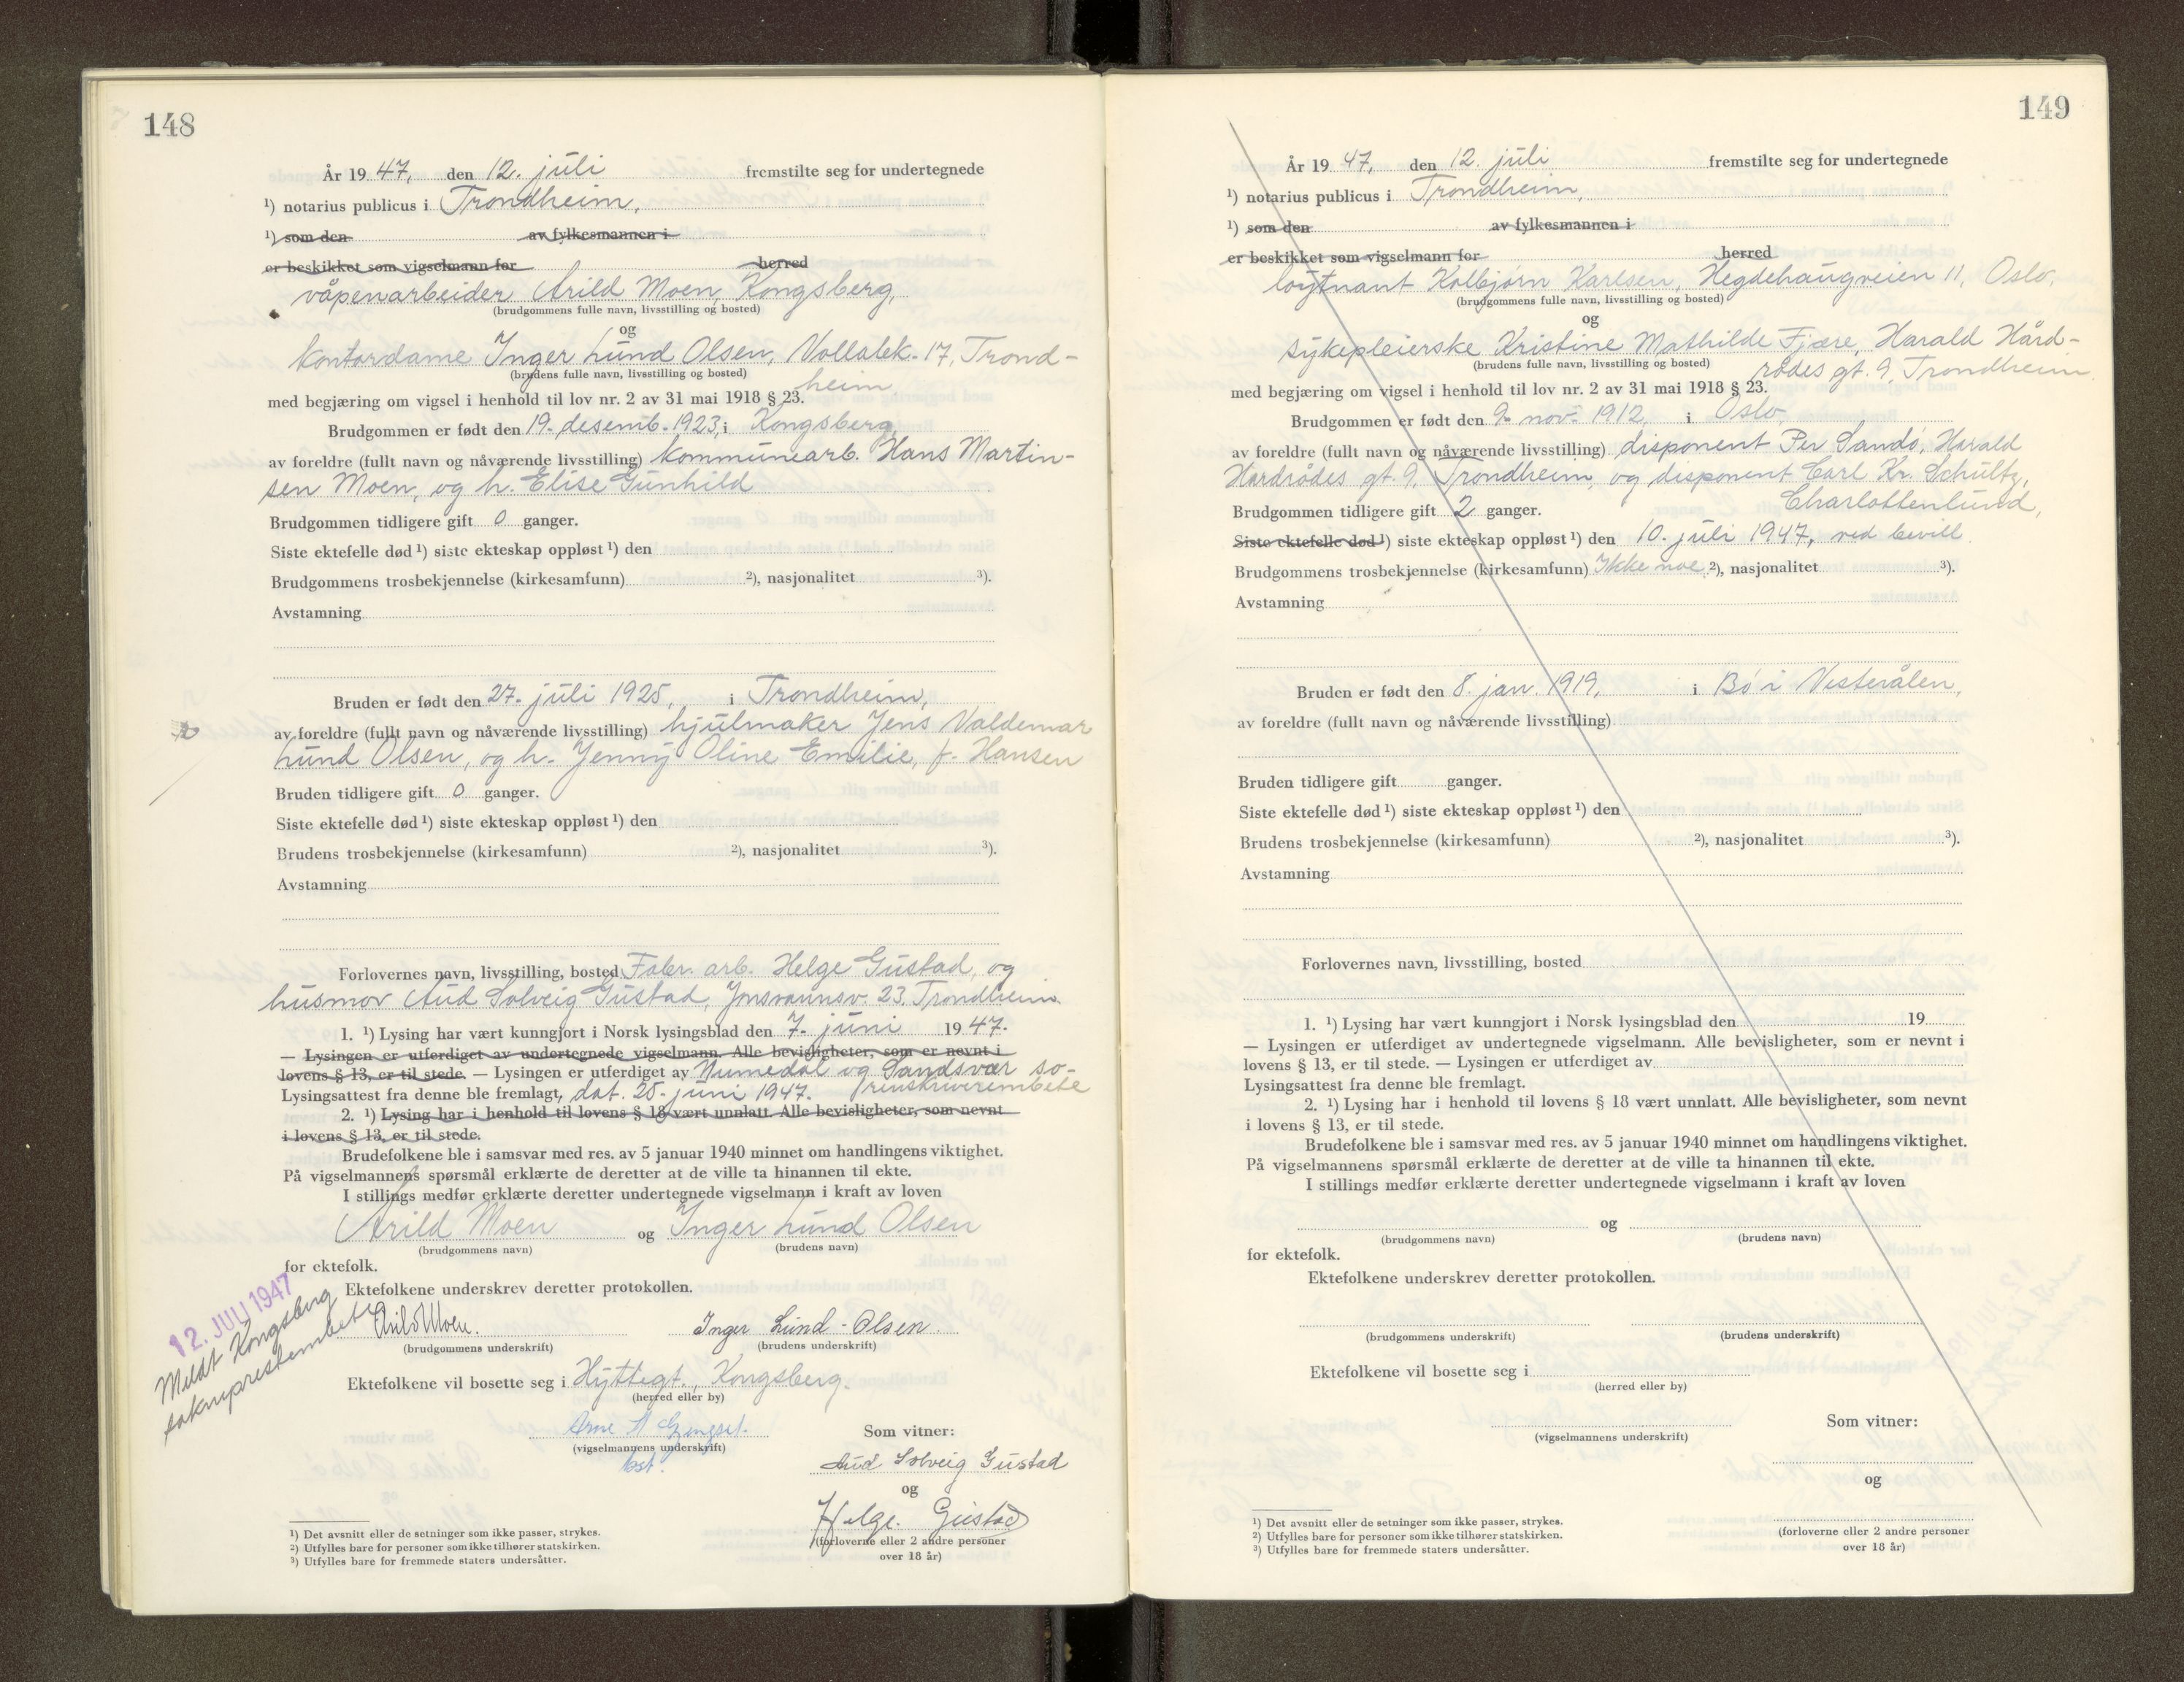 148
År 19 47, den 12. juli fremstilte seg for undertegnede
¹) notarius publicus i Trondheim,
¹) som den av fylkesmannen i
er beskikket som vigselmann for herred
våpenarbeider Arild Moen, Kongsberg,
(brudgommens fulle navn, livsstilling og bosted)
og
kontordame Inger Lund Olsen, Vollabk. 17, Trond-
(brudens fulle navn, livsstilling og bosted) heim
med begjæring om vigsel i henhold til lov nr. 2 av 31 mai 1918 § 23.
Brudgommen er født den 19. desemb. 1923, i Kongsberg,
av foreldre (fullt navn og nåværende livsstilling) kommunearb. Hans Martin-
sen Moen, og h. Elise Gunhild
Brudgommen tidligere gift 0 ganger.
Siste ektefelle død ¹) siste ekteskap oppløst ¹) den
Brudgommens trosbekjennelse (kirkesamfunn) ²), nasjonalitet ³).
Avstamning
Bruden er født den 27. juli 1925, i Trondheim,
av foreldre (fullt navn og nåværende livsstilling) hjulmaker Jens Valdemar
Lund Olsen, og h. Jenny Oline Emilie, f. Hansen
Bruden tidligere gift 0 ganger.
Siste ektefelle død ¹) siste ekteskap oppløst ¹) den
Brudens trosbekjennelse (kirkesamfunn) ²), nasjonalitet ³).
Avstamning
Forlovernes navn, livsstilling, bosted Fabr. arb. Helge Gustad, og
husmor Aud Solveig Gustad, Jonsvannsv. 23. Trondheim.
1. ¹) Lysing har vært kunngjort i Norsk lysingsblad den 7. juni 1947.
— Lysingen er utferdiget av undertegnede vigselmann. Alle bevisligheter, som er nevnt i
lovens § 13, er til stede. — Lysingen er utferdiget av Numedal og Sandsvær so-
Lysingsattest fra denne ble fremlagt, dat. 25. juni 1947. renskriverembete
2. ¹) Lysing har i henhold til lovens § 18 vært unnlatt. Alle bevisligheter, som nevnt
i lovens § 13, er til stede.
Brudefolkene ble i samsvar med res. av 5 januar 1940 minnet om handlingens viktighet.
På vigselmannens spørsmål erklærte de deretter at de ville ta hinannen til ekte.
I stillings medfør erklærte deretter undertegnede vigselmann i kraft av loven
Arild Moen og Inger Lund Olsen
(brudgommens navn) (brudens navn)
for ektefolk.
Ektefolkene underskrev deretter protokollen.
12. JULI 1947
Meldt Kongsberg
sokneprestembete
Arild Moen. Inger Lund-Olsen.
(brudgommens underskrift) (brudens underskrift)
Ektefolkene vil bosette seg i Hyttegt., Kongsberg.
(herred eller by)
Arne
(vigselmannens underskrift)
bst.
Som vitner:
Aud Solveig Gustad
og
Helge Gustad
(forloverne eller 2 andre personer
over 18 år)
¹) Det avsnitt eller de setninger som ikke passer, strykes.
²) Utfylles bare for personer som ikke tilhører statskirken.
³) Utfylles bare for fremmede staters undersåtter.
149
År 19 47, den 12. juli fremstilte seg for undertegnede
¹) notarius publicus i Trondheim,
¹) som den av fylkesmannen i
er beskikket som vigselmann for herred
løytnant Kolbjørn Karlsen, Hegdehaugveien 11, Oslo,
(brudgommens fulle navn, livsstilling og bosted)
og
sykepleierske Kristine Mathilde Fjære, Harald Hård-
(brudens fulle navn, livsstilling og bosted) rådes gt. 9, Trondheim.
med begjæring om vigsel i henhold til lov nr. 2 av 31 mai 1918 § 23.
Brudgommen er født den 9. nov. 1912, i Oslo,
av foreldre (fullt navn og nåværende livsstilling) disponent Per Sandø, Harald
Hardrådes gt. 9, Trondheim, og disponent Carl Kr. Schultz,
Charlottenlund,
Brudgommen tidligere gift 2 ganger.
Siste ektefelle død ¹) siste ekteskap oppløst ¹) den 10. juli 1947, ved bevill
Brudgommens trosbekjennelse (kirkesamfunn) Ikke noe ²), nasjonalitet ³).
Avstamning
Bruden er født den 8. jan. 1919, i Bø i Vesterålen,
av foreldre (fullt navn og nåværende livsstilling)
Bruden tidligere gift ganger.
Siste ektefelle død ¹) siste ekteskap oppløst ¹) den
Brudens trosbekjennelse (kirkesamfunn) ²), nasjonalitet ³).
Avstamning
Forlovernes navn, livsstilling, bosted
1. ¹) Lysing har vært kunngjort i Norsk lysingsblad den 19
— Lysingen er utferdiget av undertegnede vigselmann. Alle bevisligheter, som er nevnt i
lovens § 13, er til stede. — Lysingen er utferdiget av
Lysingsattest fra denne ble fremlagt.
2. ¹) Lysing har i henhold til lovens § 18 vært unnlatt. Alle bevisligheter, som nevnt
i lovens § 13, er til stede.
Brudefolkene ble i samsvar med res. av 5 januar 1940 minnet om handlingens viktighet.
På vigselmannens spørsmål erklærte de deretter at de ville ta hinannen til ekte.
I stillings medfør erklærte deretter undertegnede vigselmann i kraft av loven
og
(brudgommens navn) (brudens navn)
for ektefolk.
Ektefolkene underskrev deretter protokollen.
(brudgommens underskrift) (brudens underskrift)
Ektefolkene vil bosette seg i
(herred eller by)
Som vitner:
(vigselmannens underskrift)
og
(forloverne eller 2 andre personer
over 18 år)
¹) Det avsnitt eller de setninger som ikke passer, strykes.
²) Utfylles bare for personer som ikke tilhører statskirken.
³) Utfylles bare for fremmede staters undersåtter.